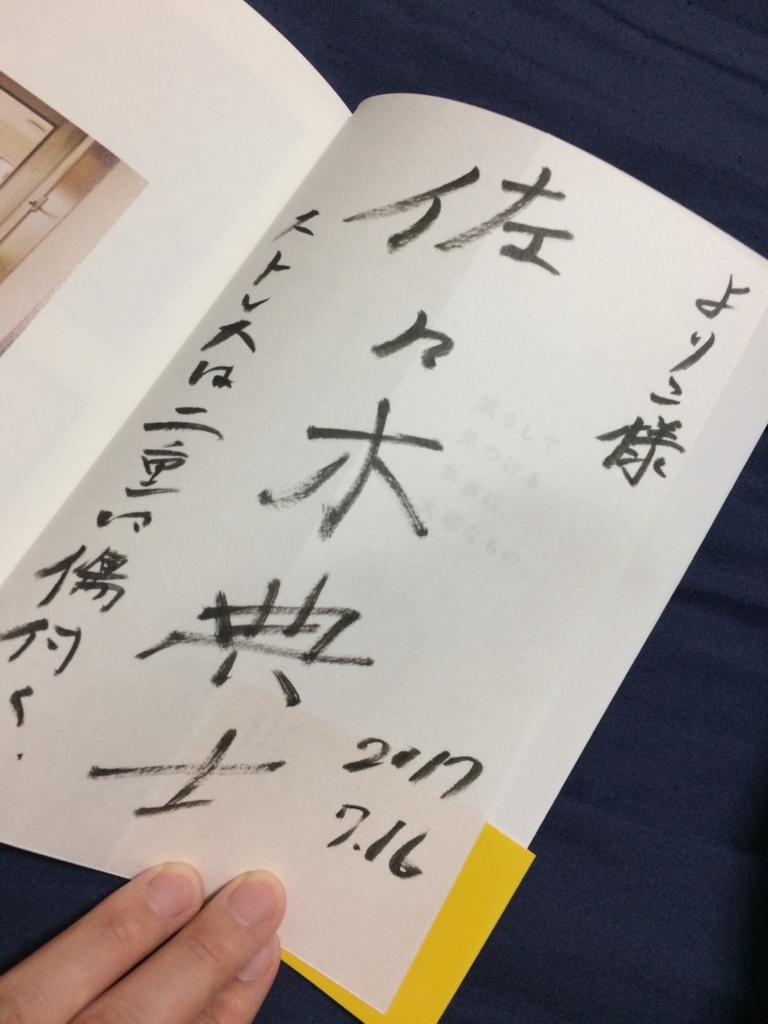 よりこ様
佐々木典士
ストレスは二重に傷付く.
2017
7.16
減らして
見つける
本当に
大切なもの。